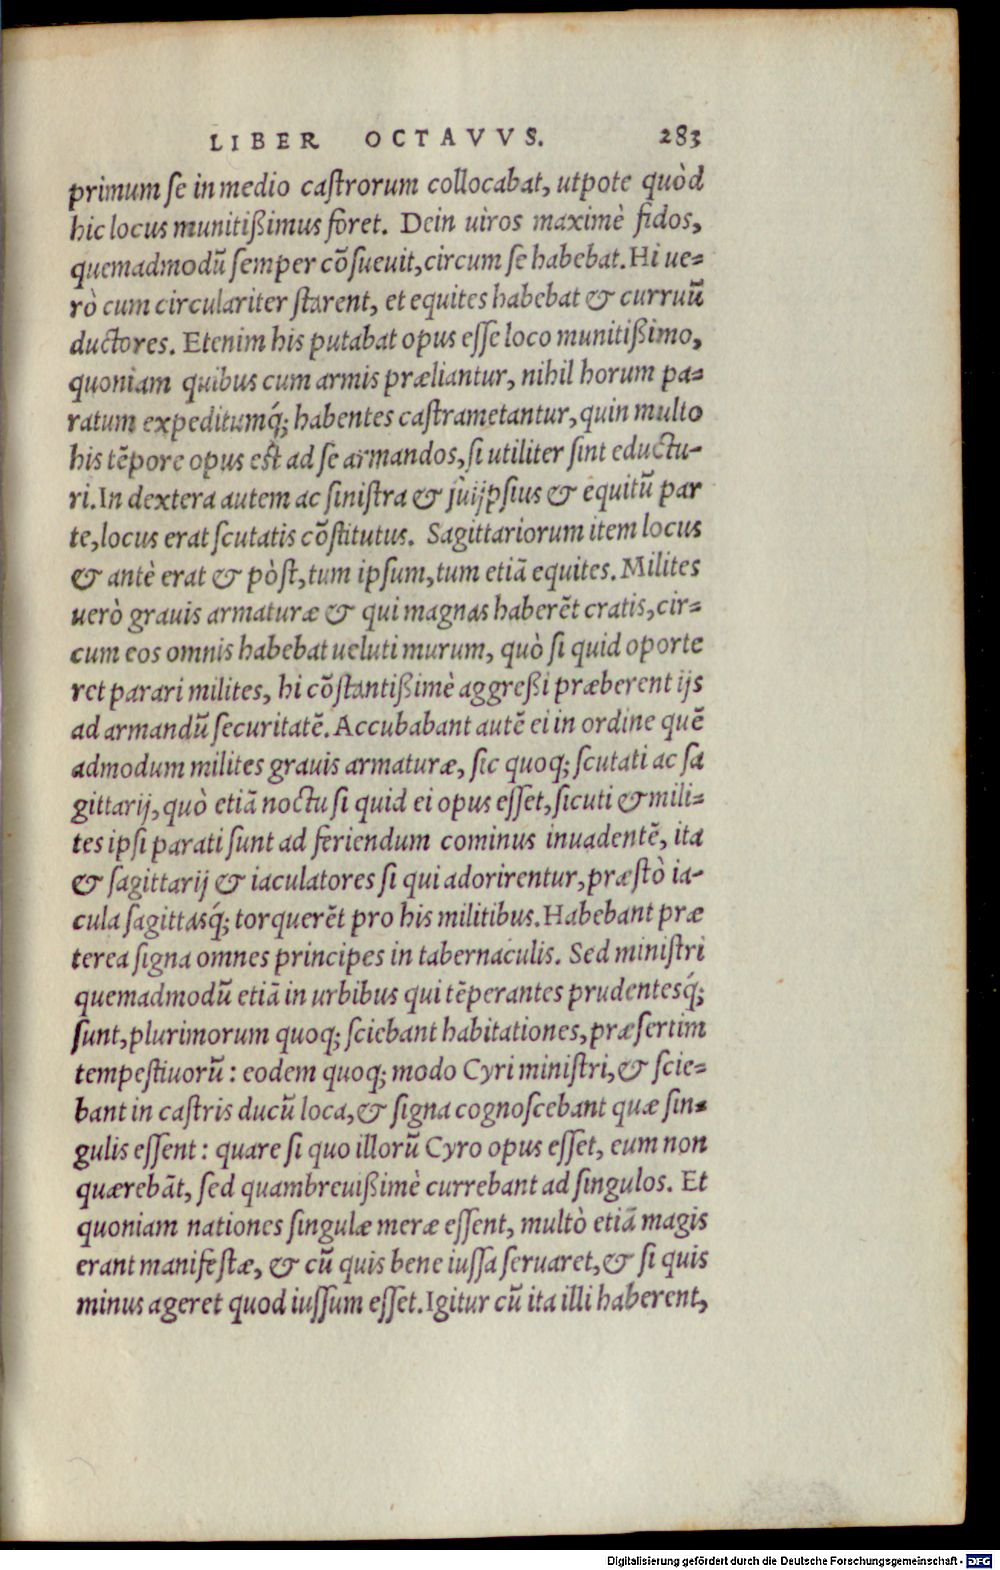 LIBER OCTAVVS. 283
primum se in medio castrorum collocabat, utpote quòd
hic locus munitißimus foret. Dein uiros maximè fidos,
quemadmodū semper cōsueuit, circum se habebat. Hi ue=
rò cum circulariter starent, et equites habebat & curruū
ductores. Etenim his putabat opus esse loco munitißimo,
quoniam quibus cum armis præliantur, nihil horum pa=
ratum expeditumq́; habentes castrametantur, quin multo
his tēpore opus est ad se armandos, si utiliter sint eductu-
ri. In dextera autem ac sinistra & suijpsius & equitū par
te, locus erat scutatis cōstitutus. Sagittariorum item locus
& antè erat & pòst, tum ipsum, tum etiā equites. Milites
uerò grauis armaturæ & qui magnas haberēt cratis, cir=
cum eos omnis habebat ueluti murum, quò si quid oporte
ret parari milites, hi cōstantißimè aggreßi præberent ijs
ad armandū securitatē. Accubabant autē ei in ordine quē
admodum milites grauis armaturæ, sic quoq; scutati ac sa
gittarij, quò etiā noctu si quid ei opus esset, sicuti & mili=
tes ipsi parati sunt ad feriendum cominus inuadentē, ita
& sagittarij & iaculatores si qui adorirentur, præstò ia-
cula sagittasq́; torquerēt pro his militibus. Habebant præ
terea signa omnes principes in tabernaculis. Sed ministri
quemadmodū etiā in urbibus qui tēperantes prudentesq́;
sunt, plurimorum quoq; sciebant habitationes, præsertim
tempestiuorū : eodem quoq; modo Cyri ministri, & scie=
bant in castris ducū loca, & signa cognoscebant quæ sin=
gulis essent : quare si quo illorū Cyro opus esset, eum non
quærebāt, sed quambreuißimè currebant ad singulos. Et
quoniam nationes singulæ meræ essent, multò etiā magis
erant manifestæ, & cū quis bene iussa seruaret, & si quis
minus ageret quod iussum esset. Igitur cū ita illi haberent,
Digitalisierung gefördert durch die Deutsche Forschungsgemeinschaft - DFG